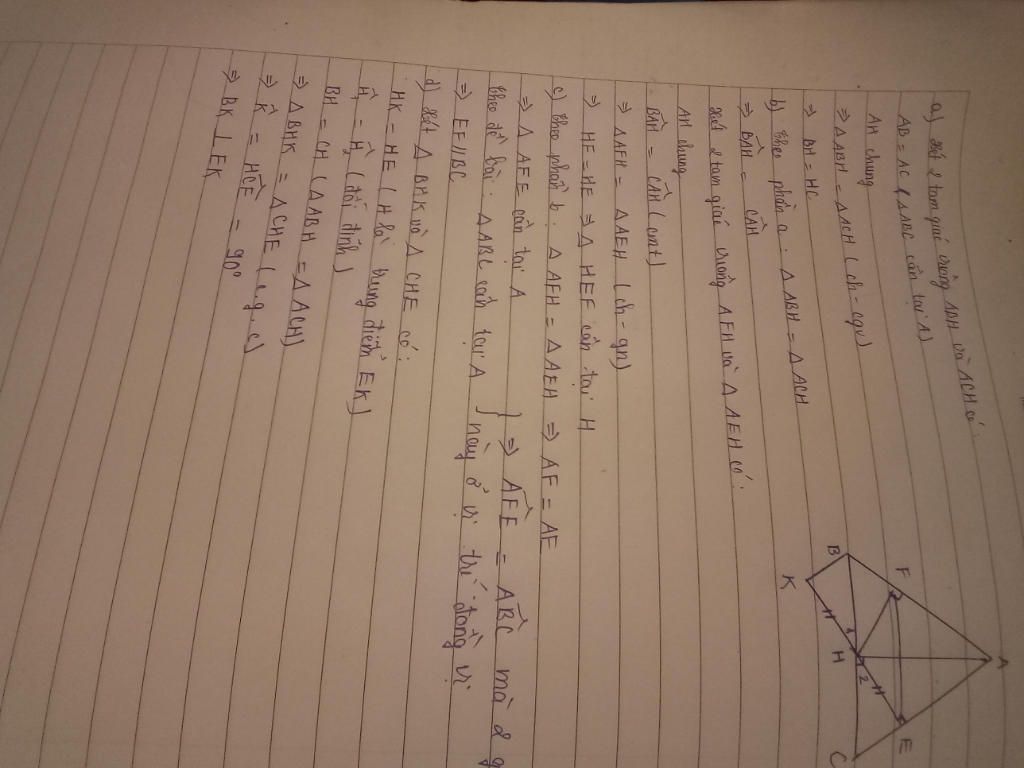 a) Xét 2 tam giác vuông ABH và ACH có:
AB = AC ( ΔABC cân tại A)
AH chung
⇒ ΔABH = ΔACH ( ch - cgv)
⇒ BH = HC
b) Theo phần a: ΔABH = ΔACH
⇒ BAH = CAH
Xét 2 tam giác vuông AFH và Δ AEH có:
AH chung
BAH = CAH ( cmt)
⇒ ΔAFH = ΔAEH ( ch - gn)
⇒ HF = HE ⇒ Δ HEF cân tại H
c) Theo phần b: ΔAEH = ΔAFH ⇒ AF = AE
⇒ Δ AFE cân tại A
Theo đề bài: ΔABC cân tại A } ⇒ AFE = ABC mà 2 g
này ở vị trí đồng vị
⇒ EF // BC
d) Xét Δ BHK và Δ CHE có:
HK = HE ( H là trung điểm EK)
H1 = H2 ( đối đỉnh)
BH = CH ( ΔABH = ΔACH)
⇒ ΔBHK = ΔCHE ( c.g.c)
⇒ K = HEC = 90°
⇒ BK ⊥ EK
A
F
E
B
K
1
H
2
C